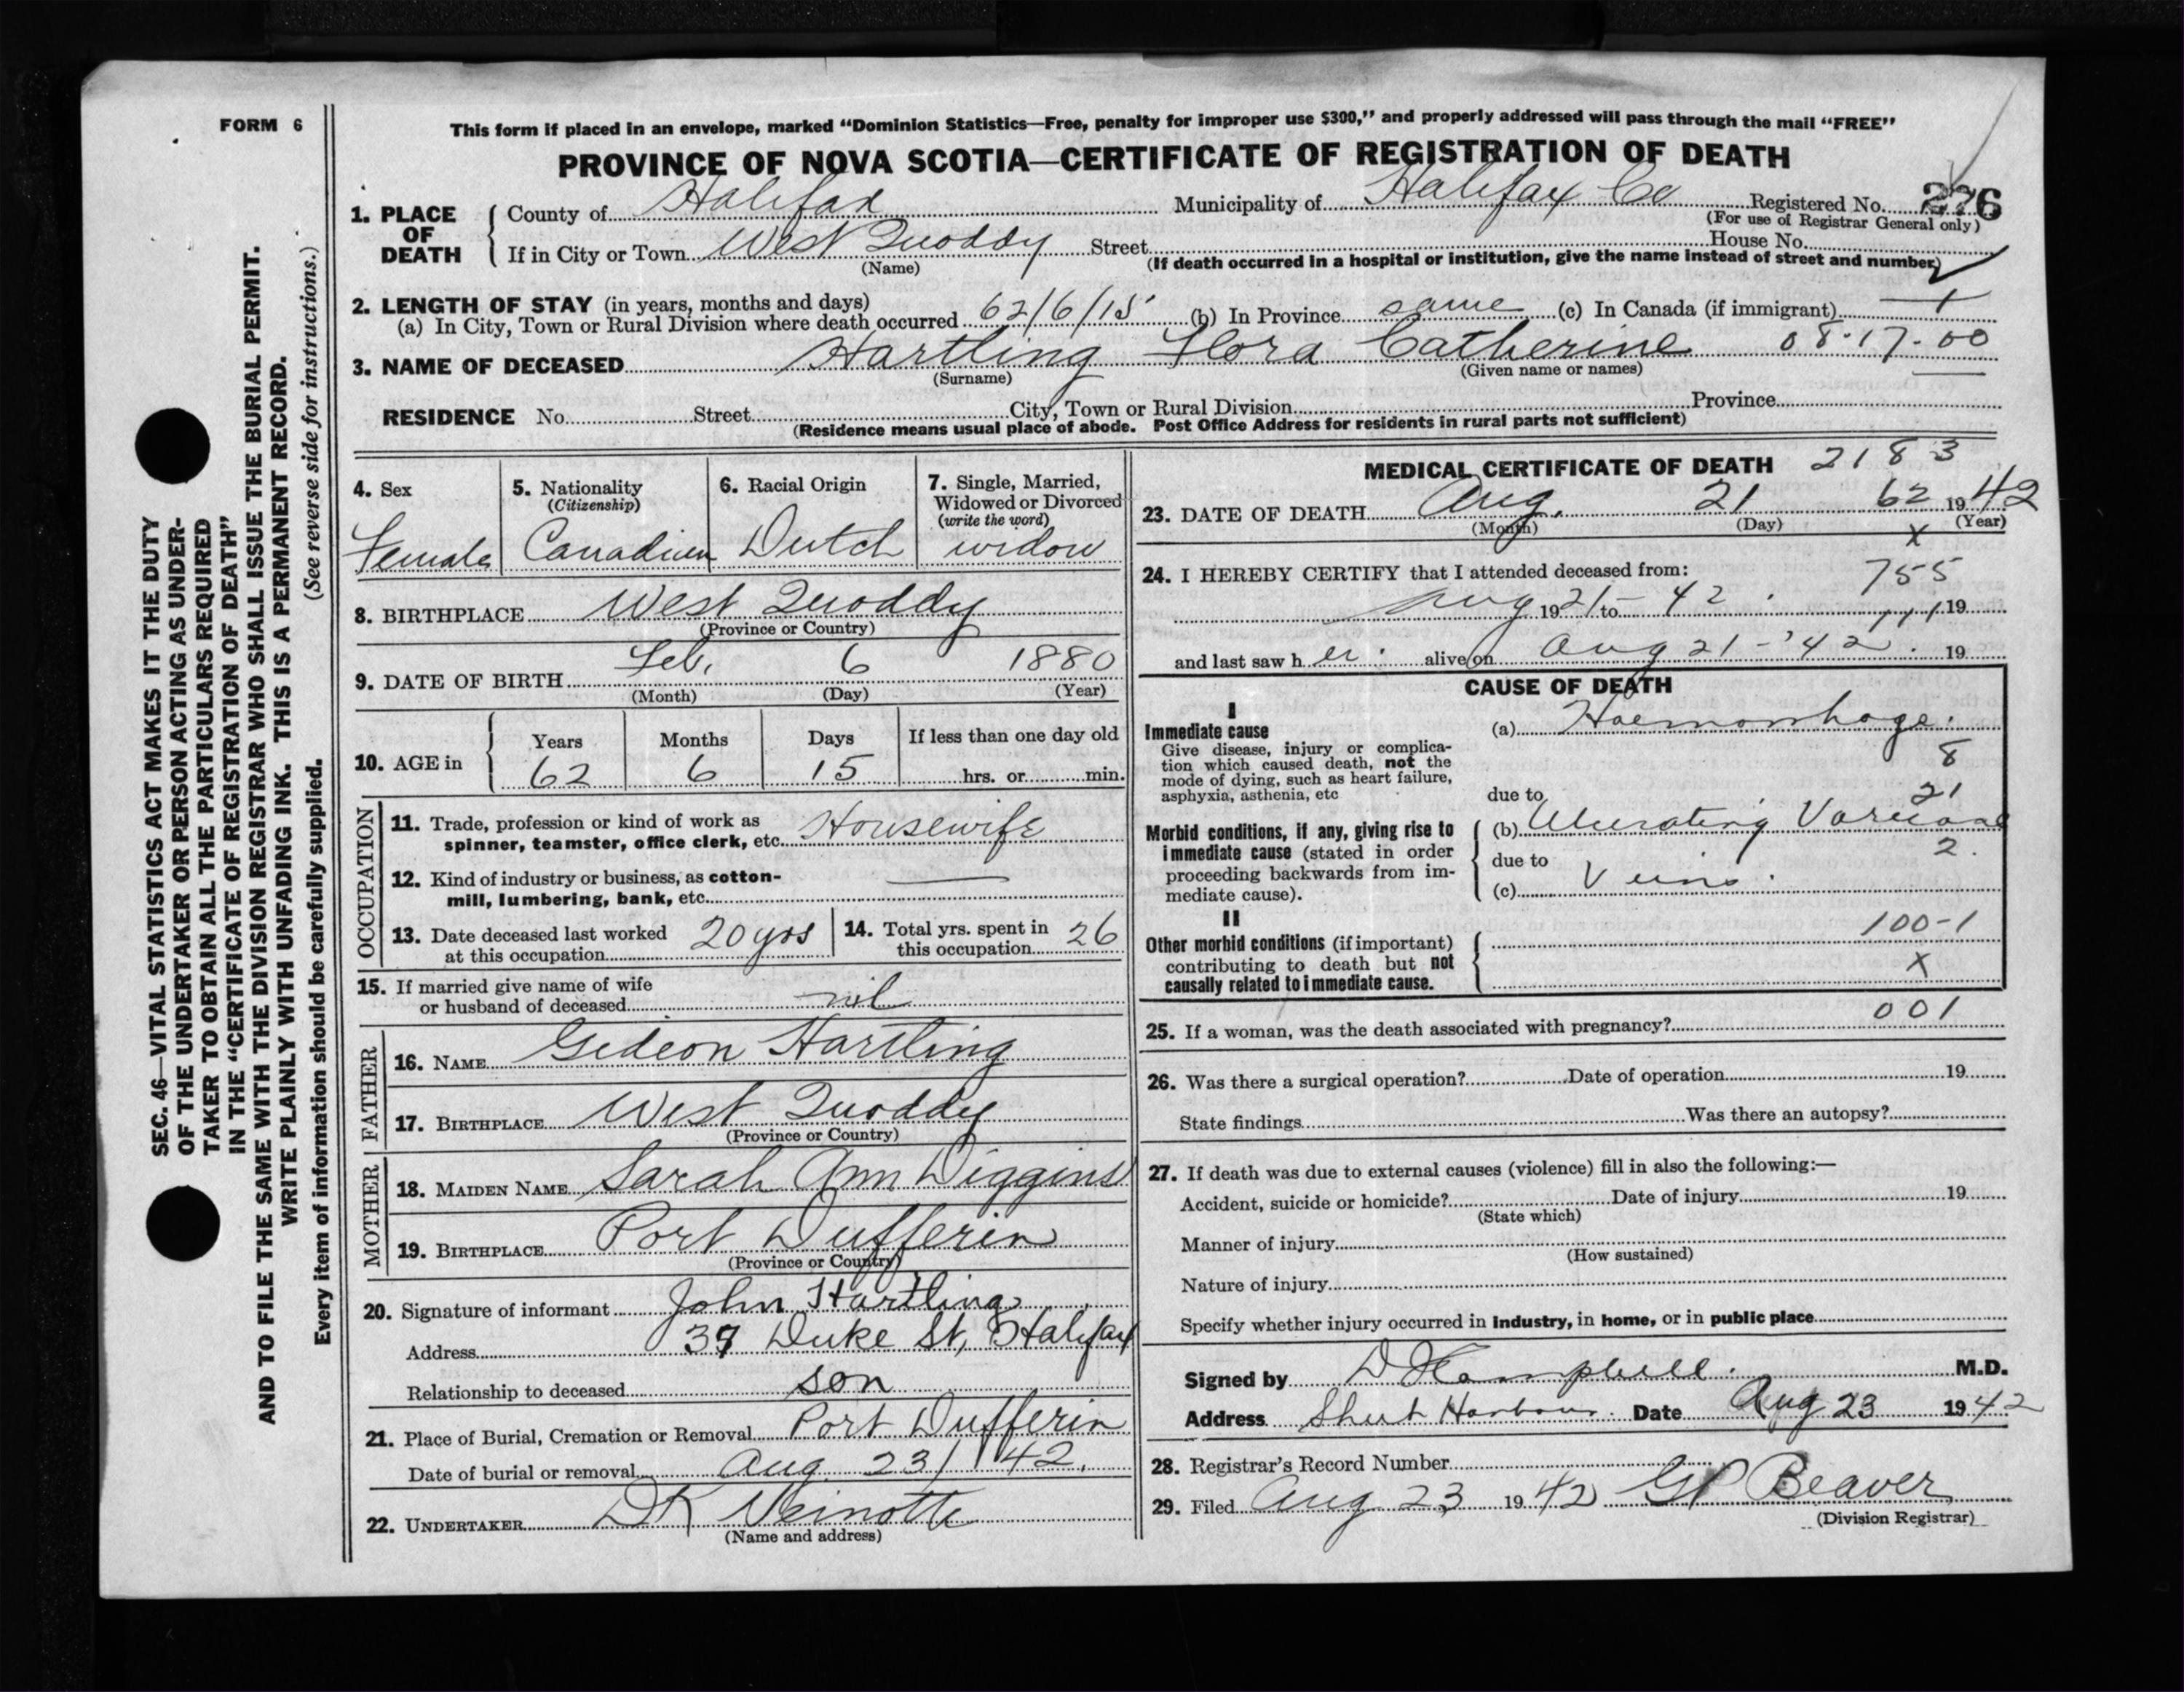 FORM 6
This form if placed in an envelope, marked "Dominion Statistics—Free, penalty for improper use $300," and properly addressed will pass through the mail "FREE"
PROVINCE OF NOVA SCOTIA—CERTIFICATE OF REGISTRATION OF DEATH
SEC. 46—VITAL STATISTICS ACT MAKES IT THE DUTY
OF THE UNDERTAKER OR PERSON ACTING AS UNDER-
TAKER TO OBTAIN ALL THE PARTICULARS REQUIRED
IN THE "CERTIFICATE OF REGISTRATION OF DEATH"
AND TO FILE THE SAME WITH THE DIVISION REGISTRAR WHO SHALL ISSUE THE BURIAL PERMIT.
WRITE PLAINLY WITH UNFADING INK. THIS IS A PERMANENT RECORD.
Every item of information should be carefully supplied. (See reverse side for instructions.)
1. PLACE OF DEATH
County of Halifax Municipality of Halifax Co Registered No. 276
(For use of Registrar General only)
If in City or Town West Quoddy Street House No.
(Name) (If death occurred in a hospital or institution, give the name instead of street and number)
2. LENGTH OF STAY (in years, months and days)
(a) In City, Town or Rural Division where death occurred 62/6/15 (b) In Province same (c) In Canada (if immigrant)
3. NAME OF DECEASED Hartling Flora Catherine 08-17-00
(Surname) (Given name or names)
RESIDENCE No. Street City, Town or Rural Division Province
(Residence means usual place of abode. Post Office Address for residents in rural parts not sufficient)
4. Sex
Female
5. Nationality
(Citizenship)
Canadian
6. Racial Origin
Dutch
7. Single, Married,
Widowed or Divorced
(write the word)
widow
8. BIRTHPLACE West Quoddy
(Province or Country)
9. DATE OF BIRTH Feb. 6 1880
(Month) (Day) (Year)
10. AGE in
Years Months Days If less than one day old
62 6 15 hrs. or min.
OCCUPATION
11. Trade, profession or kind of work as
spinner, teamster, office clerk, etc. Housewife
12. Kind of industry or business, as cotton-
mill, lumbering, bank, etc. —
13. Date deceased last worked
at this occupation 20 yrs
14. Total yrs. spent in
this occupation 26
15. If married give name of wife
or husband of deceased nil
FATHER
16. NAME Gideon Hartling
17. BIRTHPLACE West Quoddy
(Province or Country)
MOTHER
18. MAIDEN NAME Sarah Ann Diggins
19. BIRTHPLACE Port Dufferin
(Province or Country)
20. Signature of informant John Hartling
Address Duke St, Halifax
Relationship to deceased son
21. Place of Burial, Cremation or Removal Port Dufferin
Date of burial or removal Aug 23/42.
22. UNDERTAKER DK Veinotte
(Name and address)
MEDICAL CERTIFICATE OF DEATH 2183
23. DATE OF DEATH Aug. 21 62 1942
(Month) (Day) (Year)
x
24. I HEREBY CERTIFY that I attended deceased from: 755
Aug 19 21 to - 42 . 111 19
and last saw her alive on Aug 21 - '42. 19
CAUSE OF DEATH
I
Immediate cause
Give disease, injury or complica-
tion which caused death, not the
mode of dying, such as heart failure,
asphyxia, asthenia, etc
(a) Haemorrhage.
8
due to 21
Morbid conditions, if any, giving rise to
immediate cause (stated in order
proceeding backwards from im-
mediate cause).
(b) Ulcerating Varicose
due to 2.
(c) Veins.
II
Other morbid conditions (if important)
contributing to death but not
causally related to immediate cause.
100-1
x
25. If a woman, was the death associated with pregnancy? 001
26. Was there a surgical operation? Date of operation 19
State findings Was there an autopsy?
27. If death was due to external causes (violence) fill in also the following:—
Accident, suicide or homicide? Date of injury 19
(State which)
Manner of injury
(How sustained)
Nature of injury
Specify whether injury occurred in industry, in home, or in public place
Signed by D Campbell. M.D.
Address Sheet Harbour. Date Aug 23 1942
28. Registrar's Record Number
29. Filed Aug 23 1942 GP Beaver
(Division Registrar)